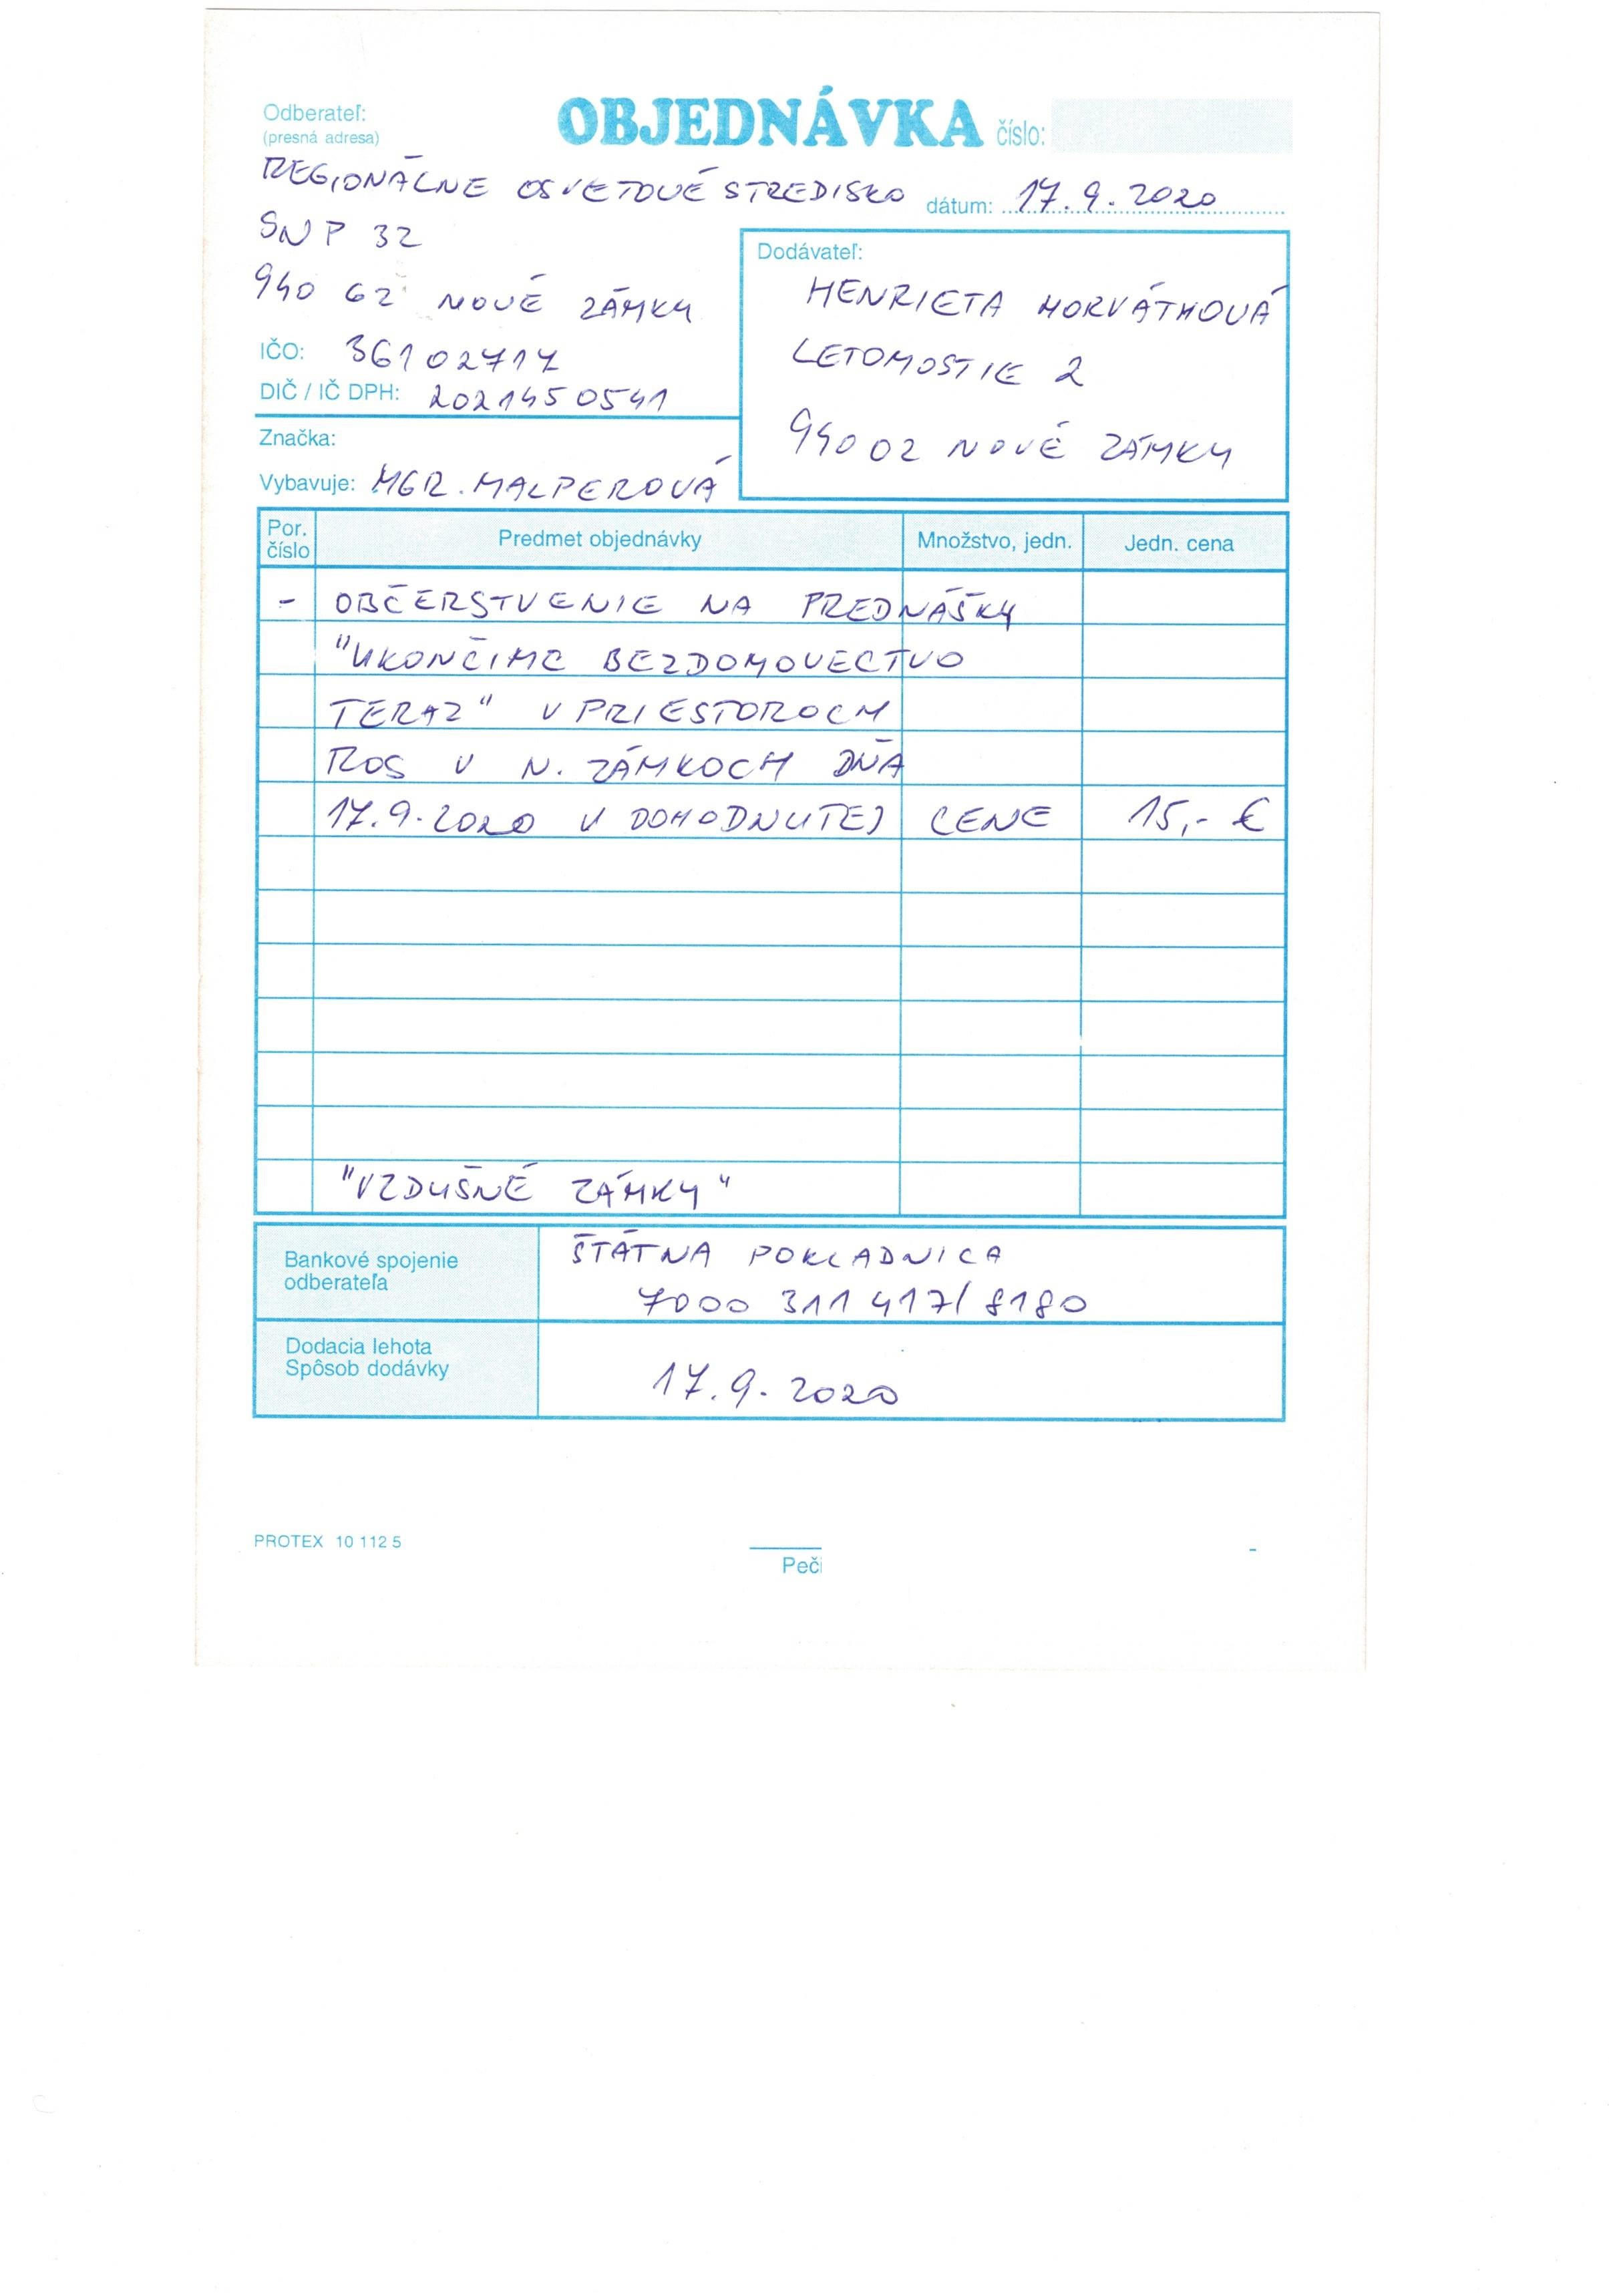 Odberateľ:
(presná adresa)
OBJEDNÁVKA číslo:
REGIONÁLNE OSVETOVÉ STREDISKO
dátum: 17.9.2020
SNP 32
940 62 NOVÉ ZÁMKY
IČO: 36102717
DIČ / IČ DPH: 2021450541
Značka:
Vybavuje: MGR. MALPEROVÁ
Dodávateľ:
HENRIETA HORVÁTHOVÁ
LETOMOSTIE 2
94002 NOVÉ ZÁMKY
Por. číslo Predmet objednávky Množstvo, jedn. Jedn. cena
- OBČERSTVENIE NA PREDNÁŠKY
"UKONČIME BEZDOMOVECTVO
TERAZ" V PRIESTOROCH
ROS V N. ZÁMKOCH DŇA
17.9.2020 V DOHODNUTEJ CENE 15,- €
"VZDUŠNÉ ZÁMKY"
Bankové spojenie
odberateľa
ŠTÁTNA POKLADNICA
7000 311 417/8180
Dodacia lehota
Spôsob dodávky
17.9.2020
PROTEX 10 112 5
Peči